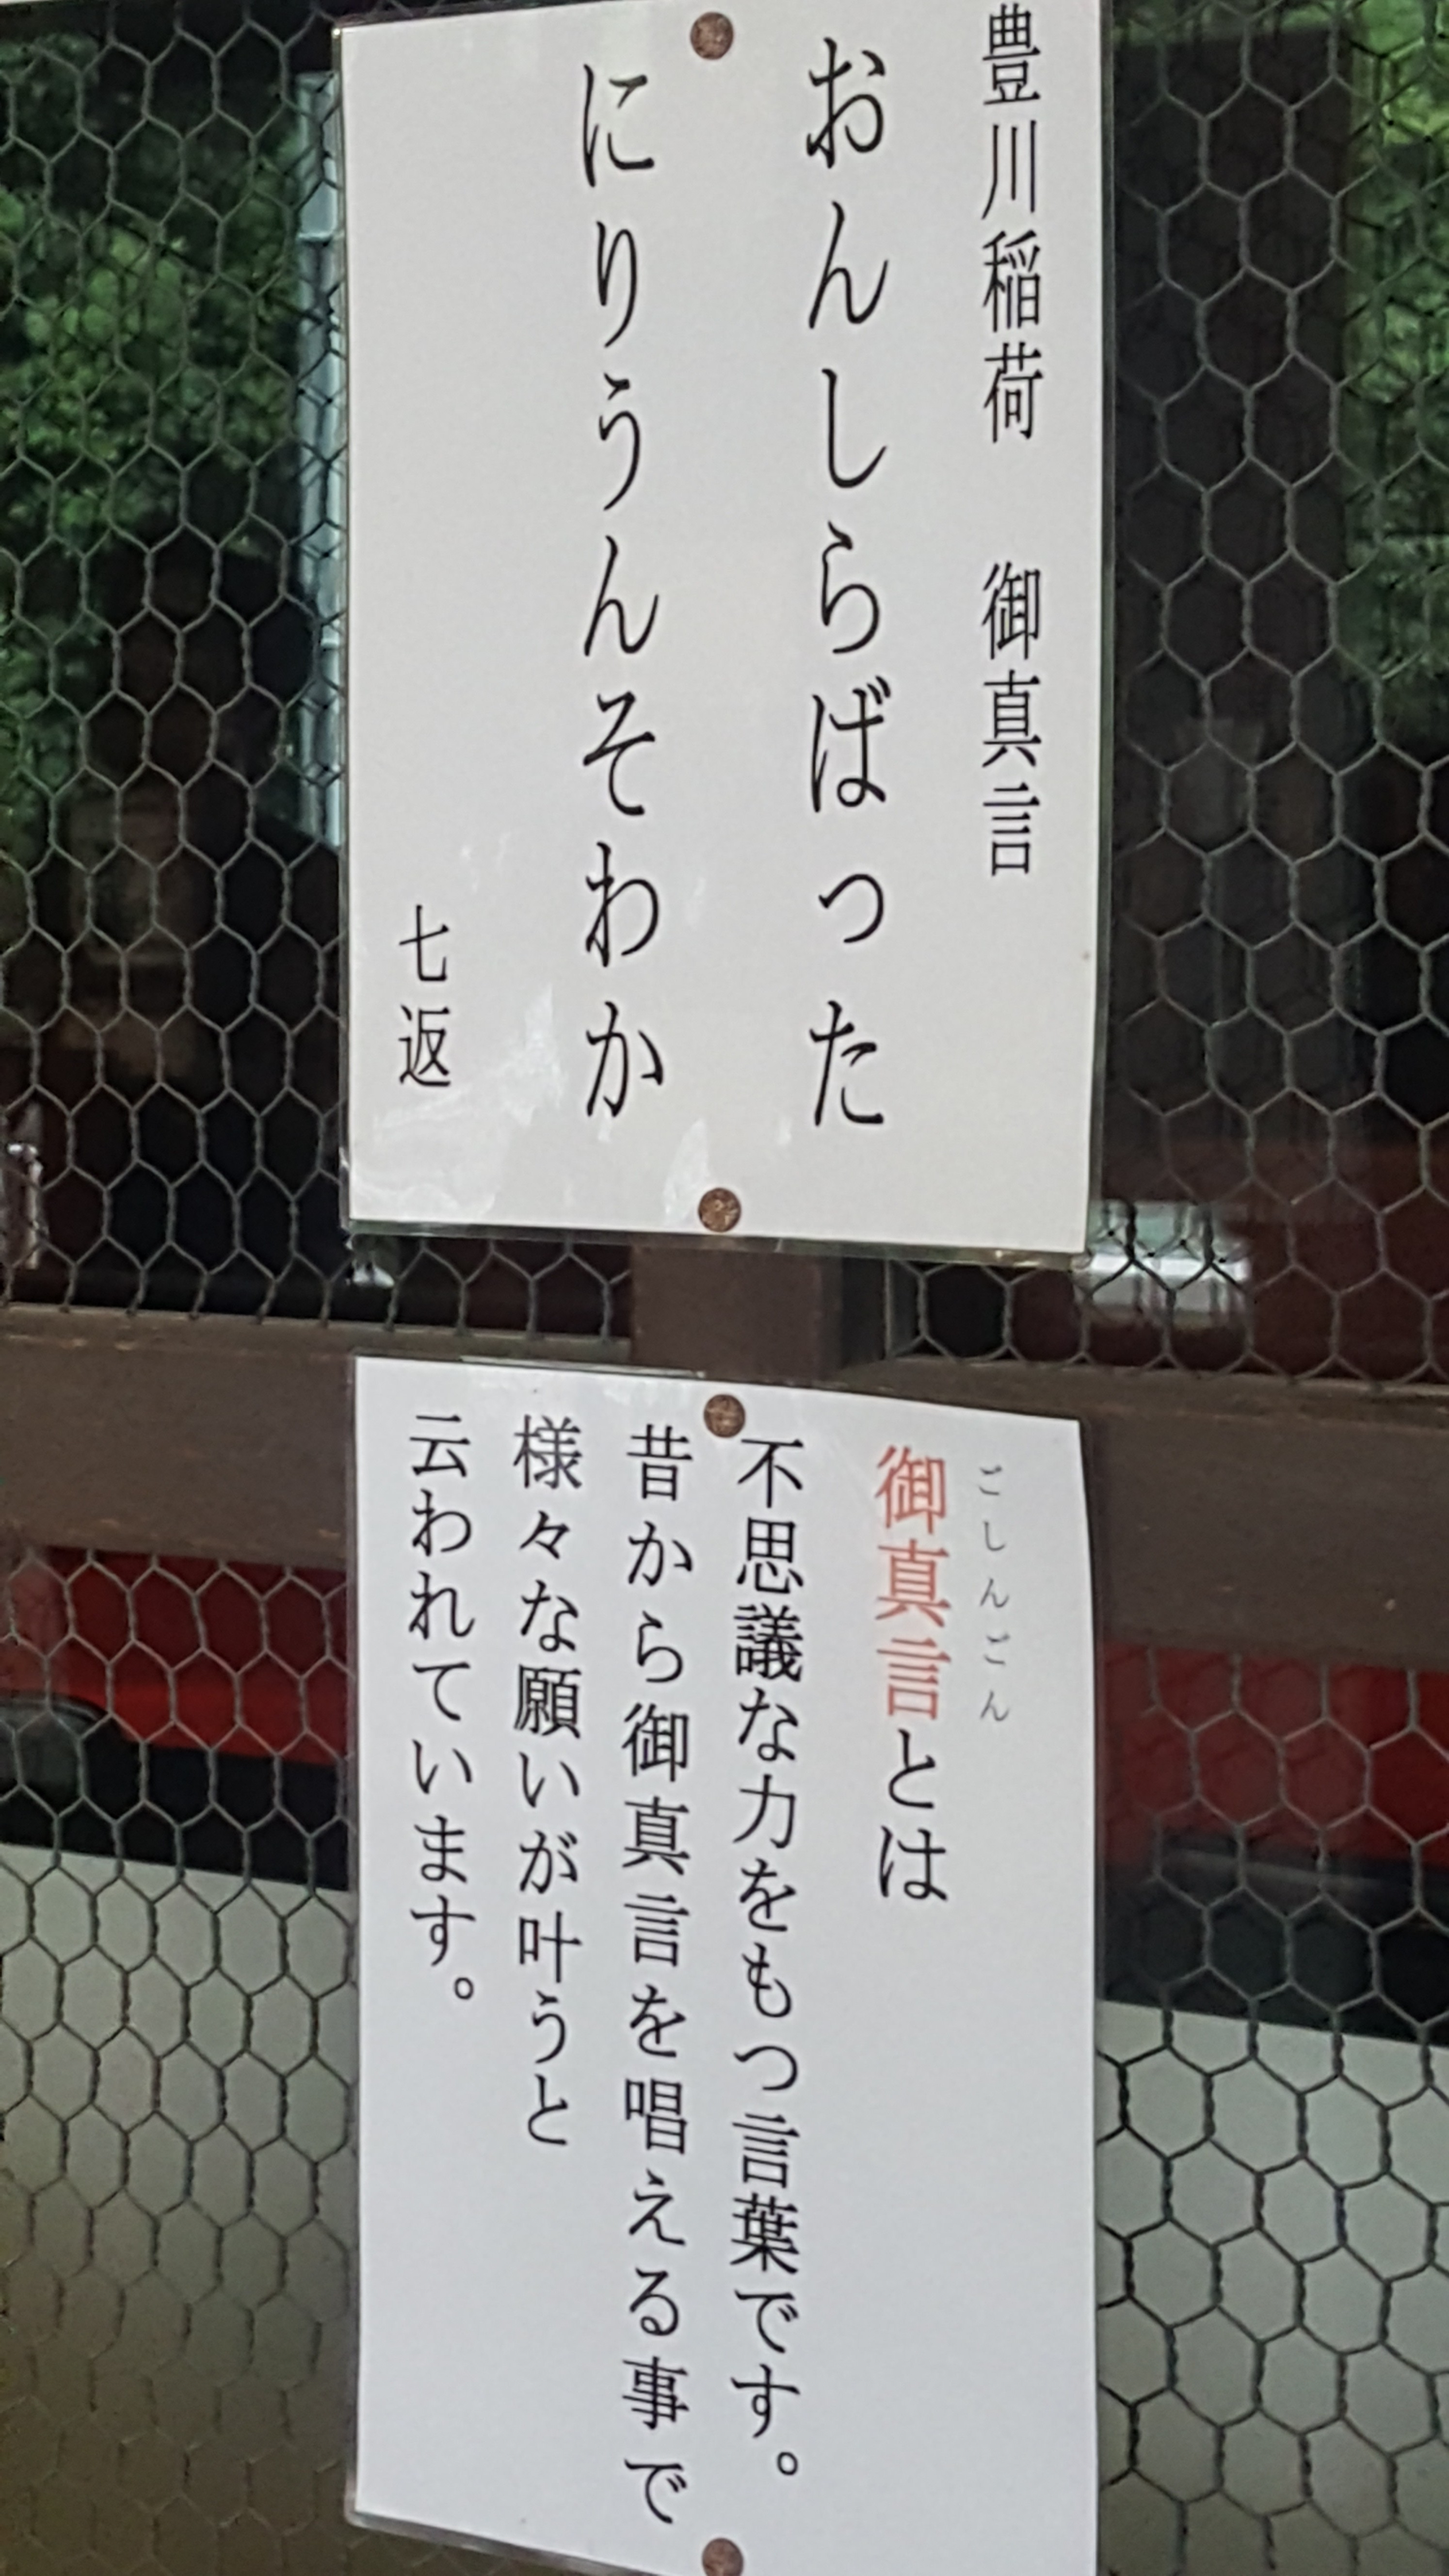 豊川稲荷　御真言
おんしらばった
にりうんそわか
七返
ごしんごん
御真言とは
不思議な力をもつ言葉です。
昔から御真言を唱える事で
様々な願いが叶うと
云われています。